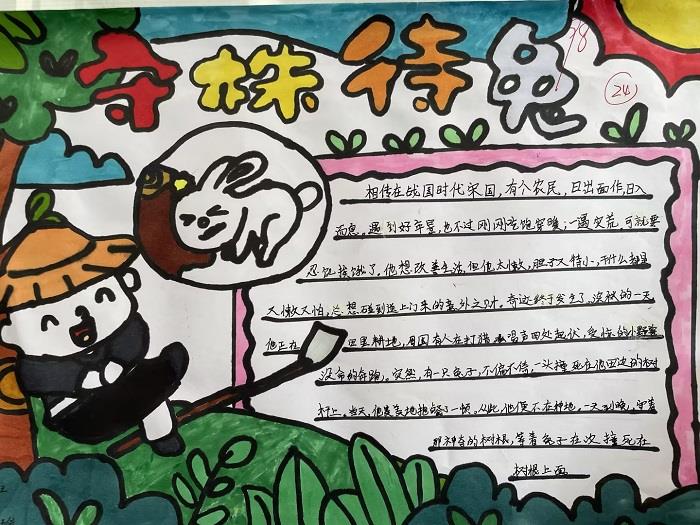 守株待兔
98
24
相传在战国时代宋国,有个农民,日出而作,日入
而息,遇到好年景,也不过刚刚吃饱穿暖;一遇灾荒,可就要
忍饥挨饿了,他想改善生活,但他太懒,胆子又特小,干什么都是
又懒又怕,总想碰到送上门来的意外之财。奇迹终于发生了,深秋的一天
他正在田里耕地,周围有人在打猎,吆喝声四处起伏,受惊的小野兽
没命的奔跑。突然,有一只兔子,不偏不倚,一头撞死在他田边的树
桩上。当天,他美美地饱餐了一顿。从此,他便不在种地,一天到晚,守着
那神奇的树根,等着兔子在次撞死在
树根上面